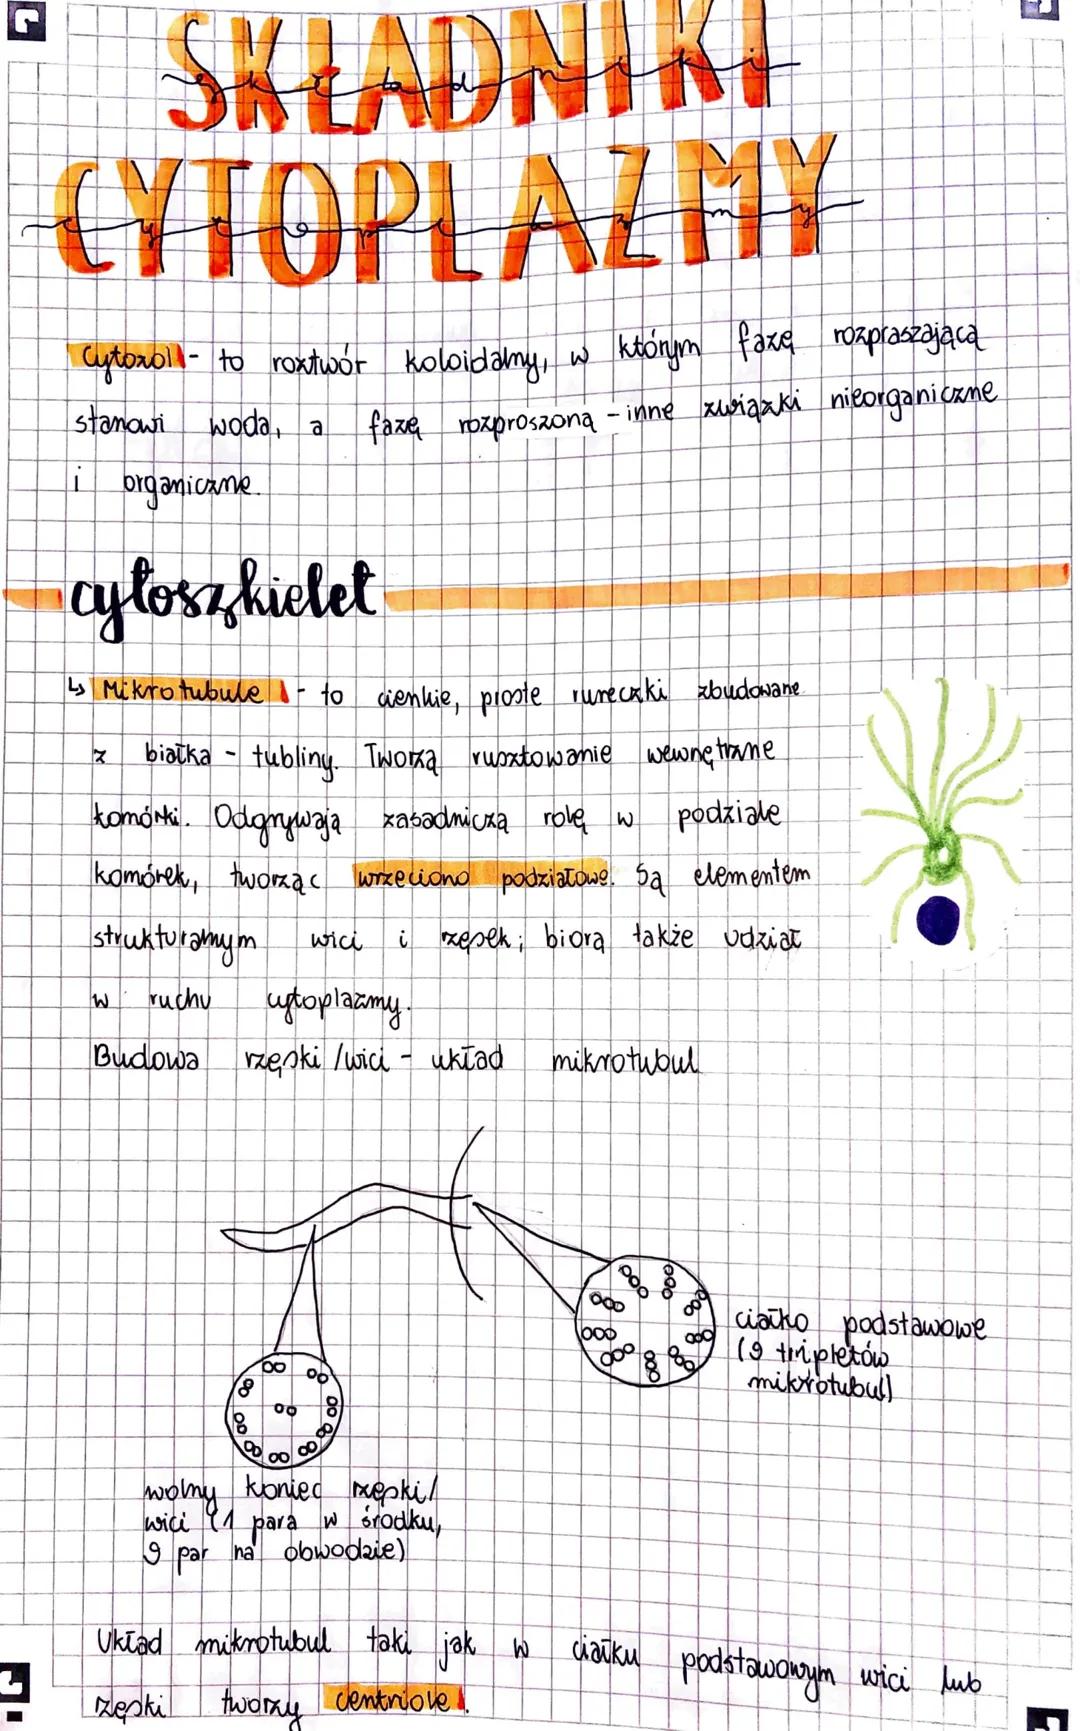 SKŁADNIKI
składniki
CYTOPLAZMY
cytoplazmy
Cytozol - to roztwór koloidalny, w którym fazę rozpraszającą
stanowi woda, a fazę rozproszoną - inne związki nieorganiczne
i organiczne.
cytoszkielet
↳ Mikrotubule - to cienkie, proste rureczki zbudowane
z białka - tubliny. Tworzą rusztowanie wewnętrzne
komórki. Odgrywają zasadniczą rolę w podziale
komórek, tworząc wrzeciono podziałowe. Są elementem
strukturalnym wici i rzęsek; biorą także udział
w ruchu cytoplazmy.
Budowa rzęski /wici - układ mikrotubul
ciałko podstawowe
(9 tripletów
mikrotubul)
wolny koniec rzęski/
wici (1 para w środku,
9 par na obwodzie)
Układ mikrotubul taki jak w ciałku podstawowym wici lub
rzęski tworzy centriole.